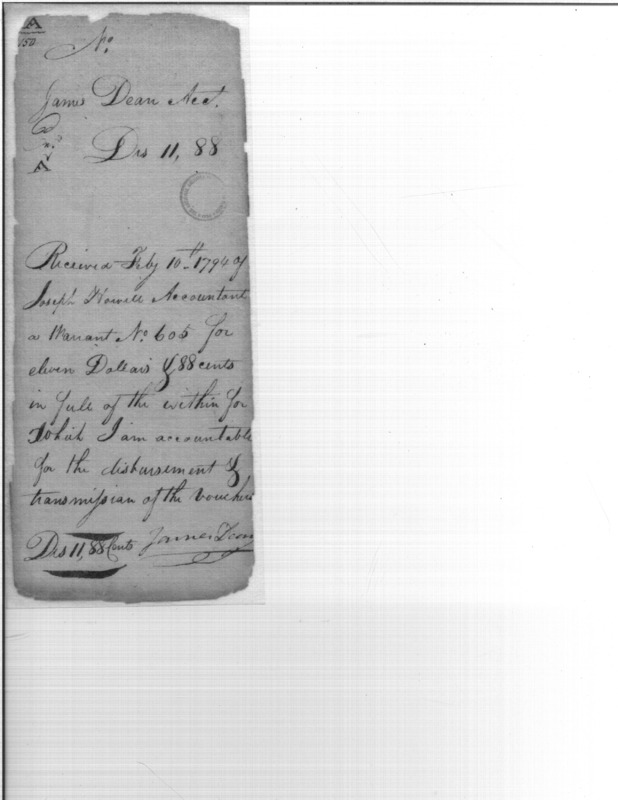 A
150
No.
James Dean Acct.
Drs 11, 88
Received Feby 10th 1794 of
Joseph Howell Accountant
a Warrant No. 605 for
eleven Dollars & 88 cents
in full of the within for
which I am accountable
for the disbursement &
transmission of the vouchers
Drs 11, 88 Cents James Dean